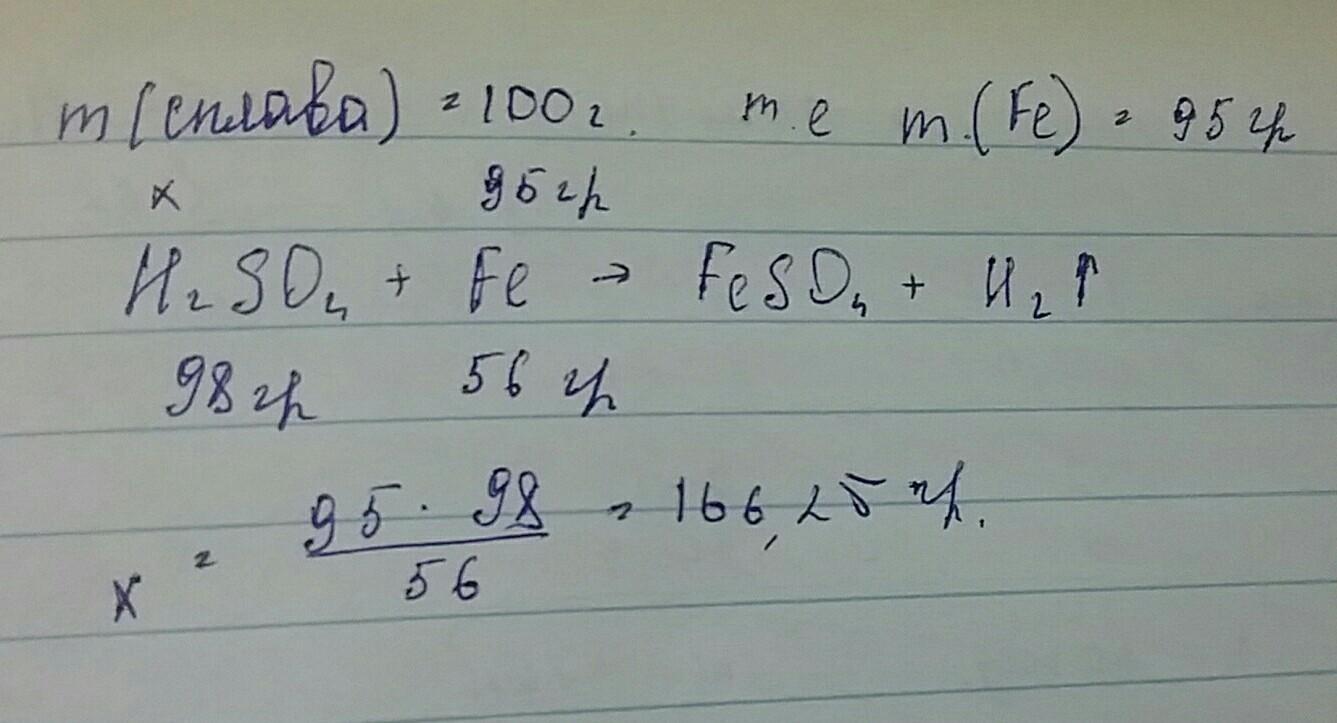 m (сплава) = 100 г. т.е m.(Fe) = 95 гр
x 95 гр
H₂SO₄ + Fe → FeSO₄ + H₂↑
98 гр 56 гр
x = 95 · 98 / 56 = 166,25 гр.